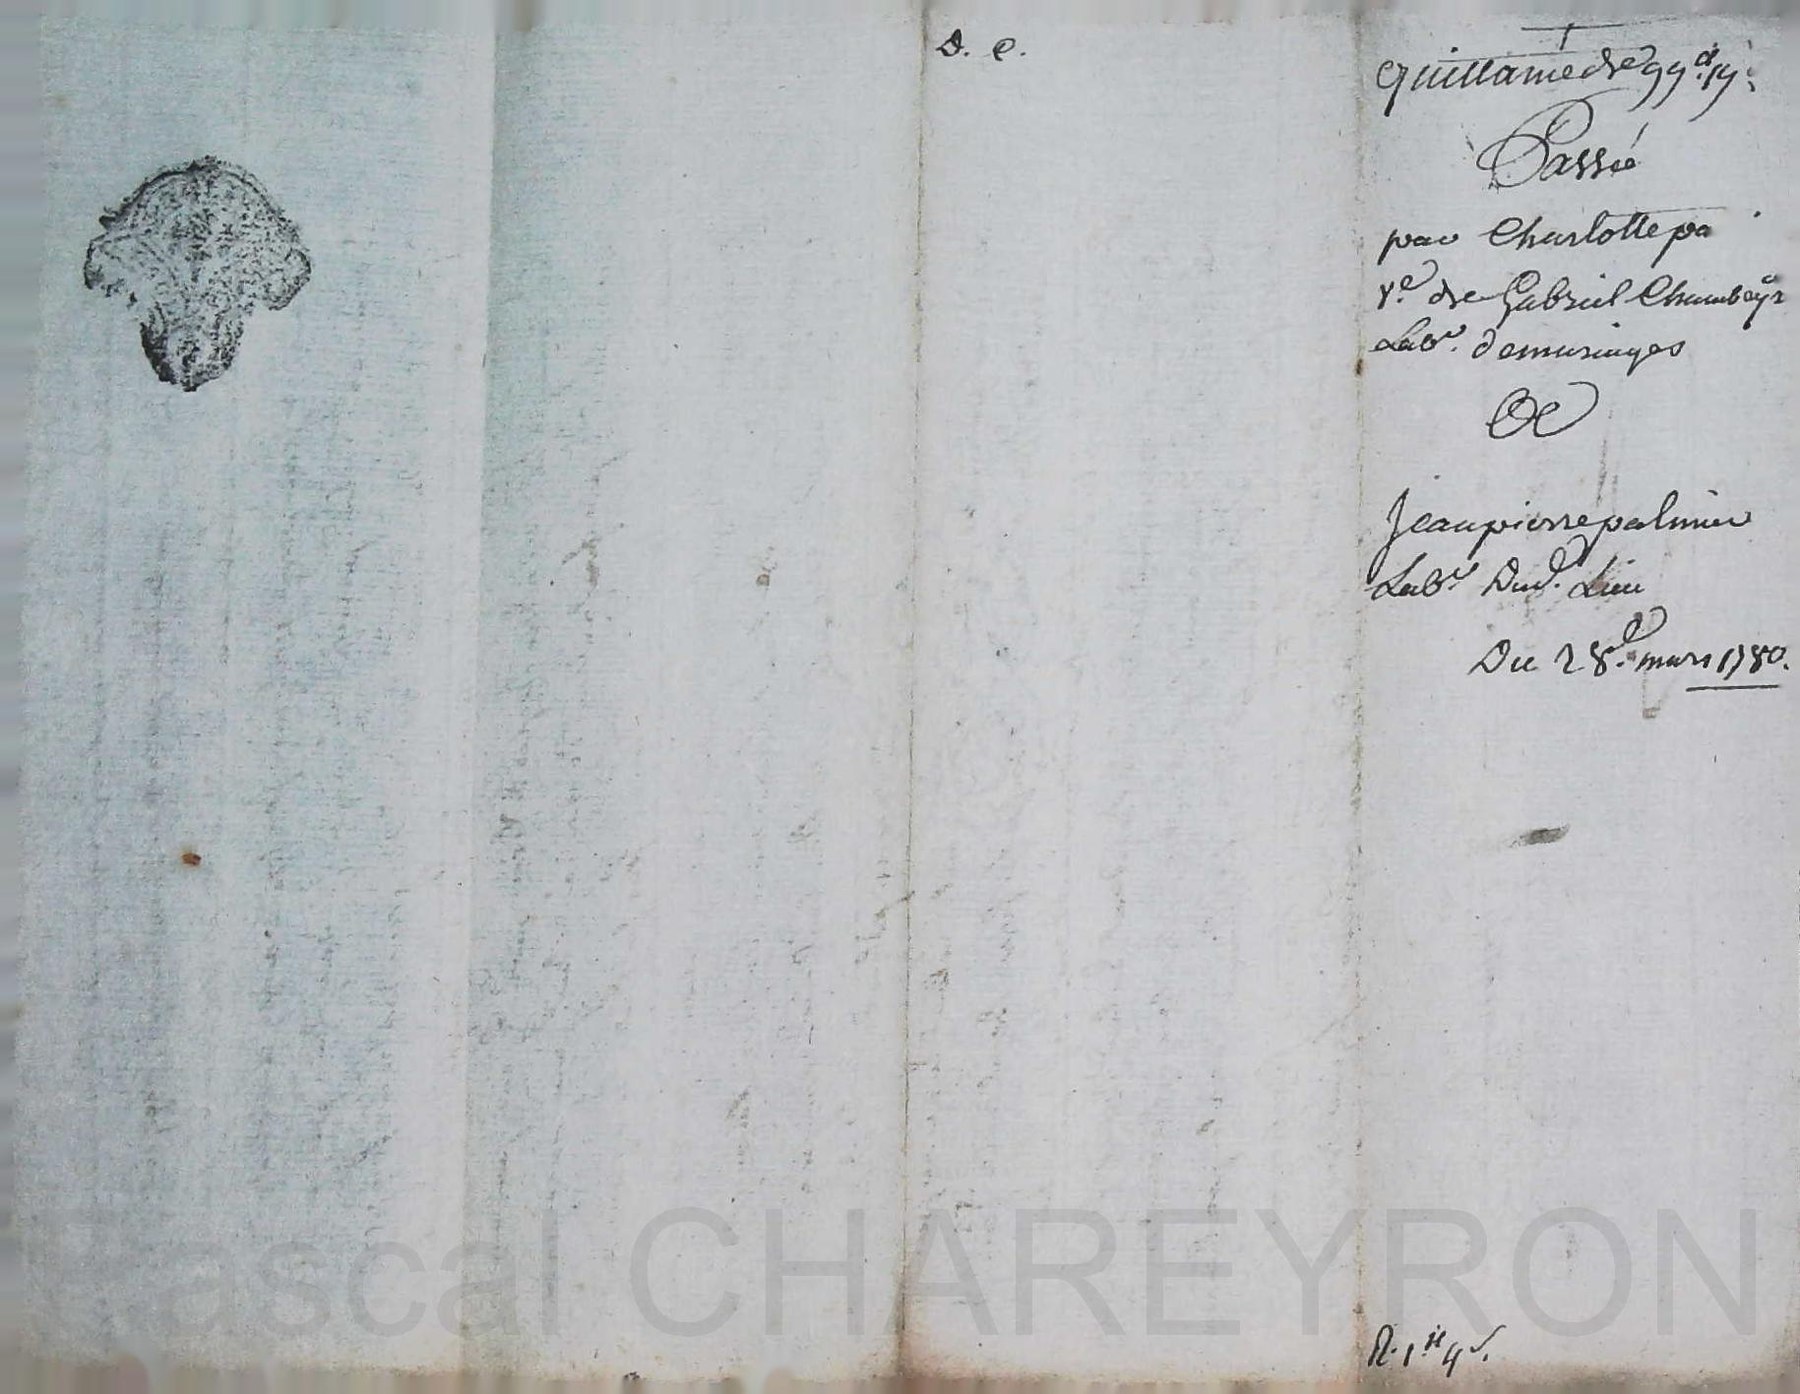 D. C.
quittance de 99# 19s
Passée
par Charlotte pa
Ve. de Gabriel Chambeyr
Labr. de mariages
A
Jean pierre palmier
Labr. Dud. Lieu
Du 28e. mars 1780.
R. 1# 4s.
Pascal CHAREYRON